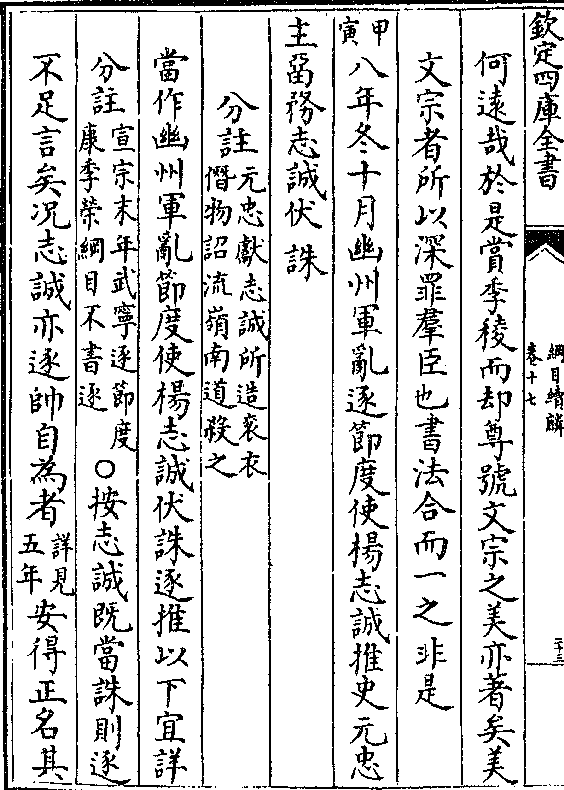 欽定四庫全書
綱目續麟
卷十七
二十三
何遠哉於是賞季稜而却尊號文宗之美亦著矣美
文宗者所以深罪羣臣也書法合而一之非是
甲寅八年冬十月幽州軍亂逐節度使楊志誠推史元忠
主畱務志誠伏誅
分註元忠獻志誠所造衮衣
僭物詔流嶺南道殺之
當作幽州軍亂節度使楊志誠伏誅逐推以下宜詳
分註宣宗末年武寧逐節度
康季榮綱目不書逐〇按志誠既當誅則逐
不足言矣况志誠亦逐帥自為者詳見
五年安得正名其